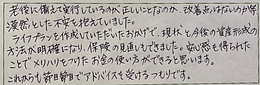 老後に備えて実行しているのが正しいことなのか、改善点はないのか等
漠然とした不安を抱えていました。
ライフプランを作成していただいたおかげで、現状と今後の資産形成の
方法が明確になり、保険の見直しもできました。安心感を得られた
ことでメリハリをつけたお金の使い方ができると思います。
これからも節目節目でアドバイスを受けるつもりです。